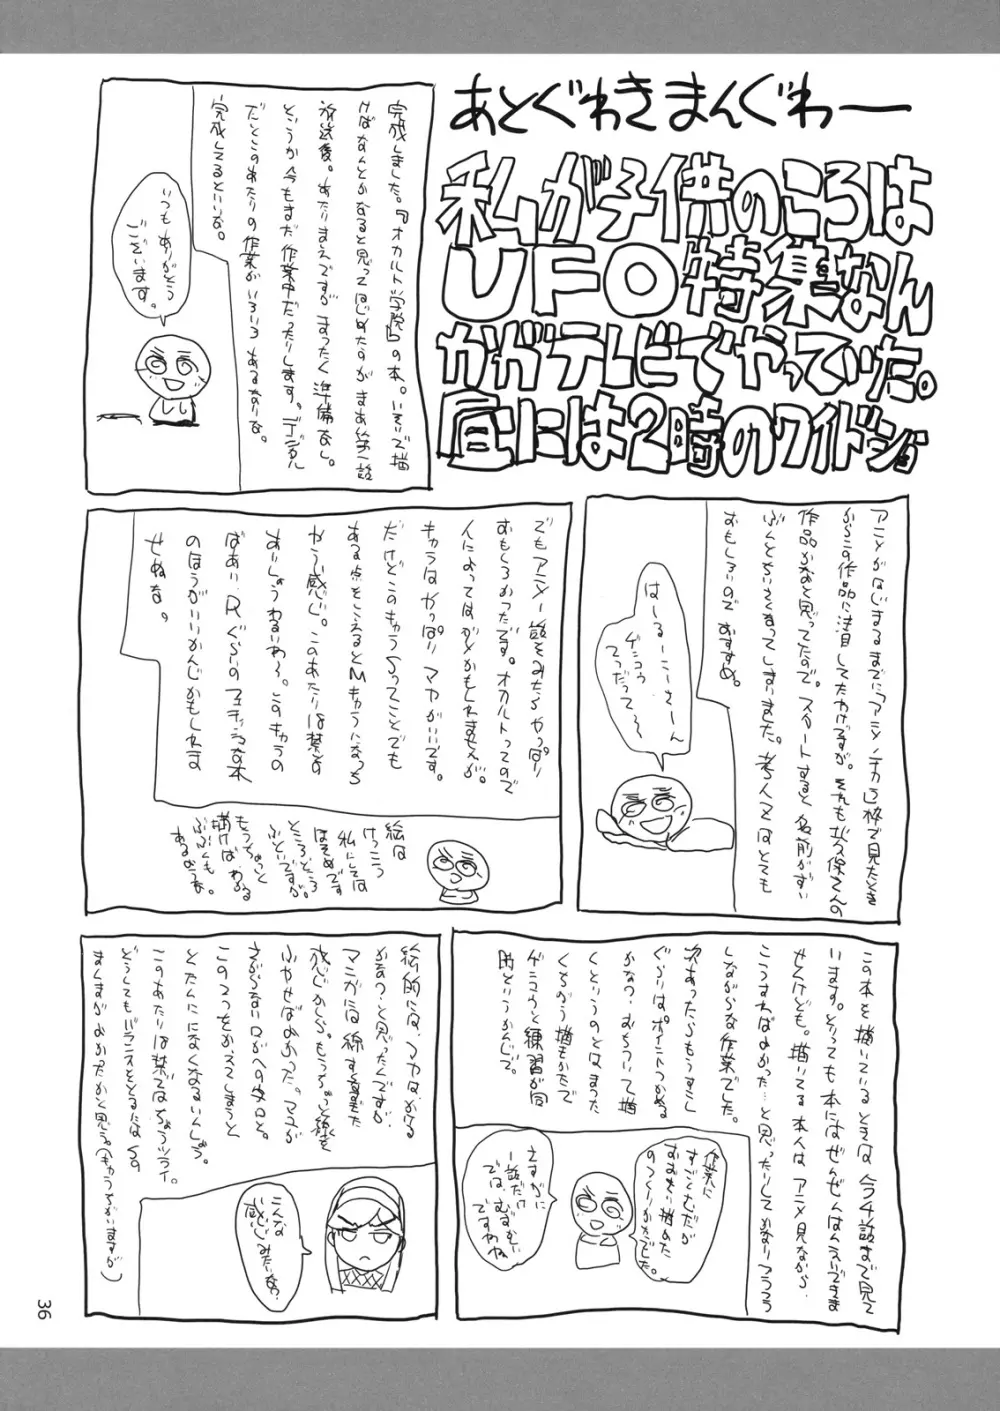 あとぐわきまんぐわー
私が子供のころは
UFO特集なん
かがテレビでやっていた。
昼には2時のワイドショ
完成しました。『オカルト学院』の本。いそいで描
けばなんとかなると思ってはじめたらがまあ第一話
放送後。あたりまえですがまったく準備なし。
というか今もまだ作業中だったりします。デジタル
だとこのあたりの作業がいろいろあるかな。
完成してるといいな。
いつもありがとう
ございます。
アニメがはじまるまでに「アニメノチカラ」枠で見たとき
からこの作品に注目してたわけですが。それも水久保さんの
作品かなと思ってたので。スタートすると名前がずい
ぶんとちいさくなってしまいました。考人又はとても
おもしろいのでおすすめ。
はーるーにーさーん
ゲンコウ
てつだって
〜
でもアニメ一話をみたらやっぱり
おもしろかったです。オカルトってので
人によってはダメかもしれませんが。
キャラはやっぱりマヤがいいです。
だけどこのキャラSってことでも
ある点をこえるとMキャラになっち
ゃう感じ。このあたりは禁書の
あいしょうわるいわ〜。このキャラの
ばあい、Rぐらいのフェチッシュな本
のほうがいいかんじかもしれま
せぬな。
絵は
けっこう
私にしては
ほそめです
ところどころ
ふといですが。
もうちょっと
描けばわかる
ぶぶんも。
あるだろうな。
この本を描いているときは今4話まで見て
います。とっても本にはぜんぜんはんえいできま
せんけども。描いてる本人はアニメ見ながら、
こうすればよかった…と思ったりしてかなりフラフラ
しながらな作業でした。
次あったらもうすこし
ぐらいはポイントつかめる
かなっ。おちついて描
くというのとはまった
くちがう描きかたで
ゲンコウと練習が同
時というかんじで。
作業に
すごくむだが
おおおい描きかた
のつくりかたでした。
さすがに
一話だけ
では、むずかしい
ですわね
絵的には、マヤはかなる
かなっ、と思ったんですが、
マンガには線すくなめた
感じかしら。もうちょっと線を
ふやせばよかった。マユが
さがらない口がへの字口と。
この2つをかえてしまうと
とたんにになくなるいんしょう。
このあたりは禁書ではちょうツライ。
どうしてもバランスをとるにはSの
まんまがよかったかと思う。(キャラちがいますが)
こんな
感じみたいな?
36